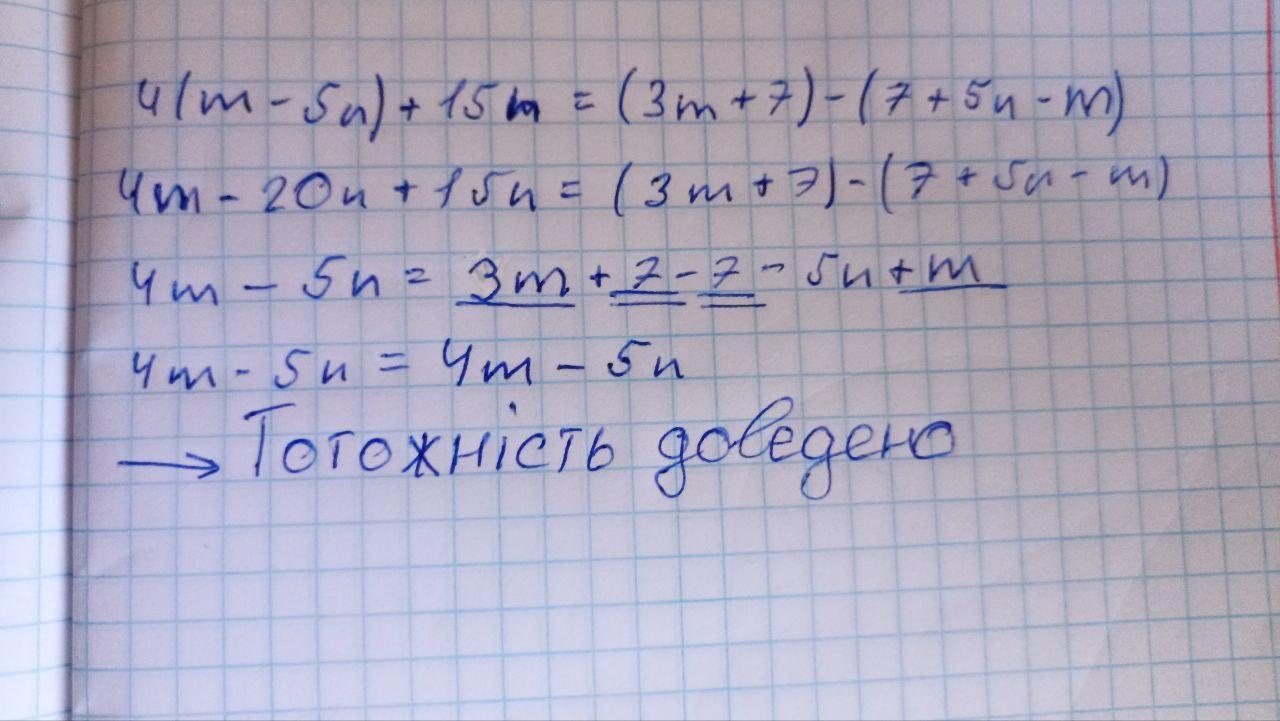 4(m - 5n) + 15n = (3m + 7) - (7 + 5n - m)
4m - 20n + 15n = (3m + 7) - (7 + 5n - m)
4m - 5n = 3m + 7 - 7 - 5n + m
4m - 5n = 4m - 5n
→ Тотожність доведено